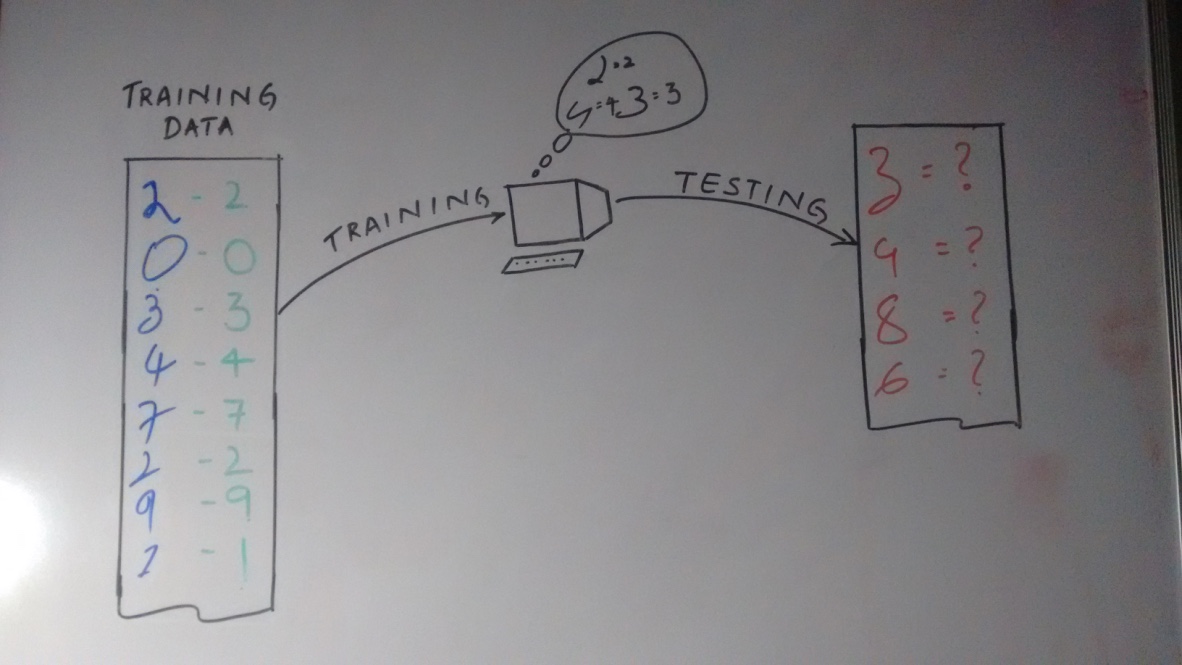 TRAINING
DATA
2 - 2
0 - 0
3 - 3
4 - 4
7 - 7
2 - 2
9 - 9
1 - 1
TRAINING
2 = 2
4 = 4 3 = 3
TESTING
3 = ?
9 = ?
8 = ?
6 = ?